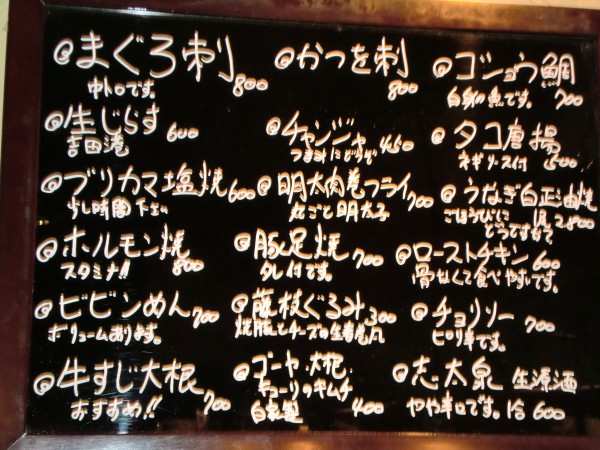 @まぐろ刺 800
中トロです。
@生じらす 600
吉田港
@ブリカマ塩焼 600
少し時間下さい
@ホルモン焼 800
スタミナ!!
@ビビンめん 700
ボリュームあります。
@牛すじ大根 700
おすすめ!!
@かつを刺 800
@チャンジャ 450
つまみにどうぞ
@明太肉巻フライ 700
丸ごと明太子
@豚足焼 700
タレ付です。
@藤枝ぐるみ 300
焼豚とチーズの生春巻
@ゴーヤ・大根
キューリのキムチ
自家製 400
@ゴショウ鯛 700
白身の魚です。
@タコ唐揚 500
ネギソース付
@うなぎ白正油焼
ごほうびに
どうですか? 2,800
@ローストチキン 600
骨なくて食べやすいです。
@チョリソー 700
ピリ辛です。
@志太泉 生源酒
やや辛口です。 600